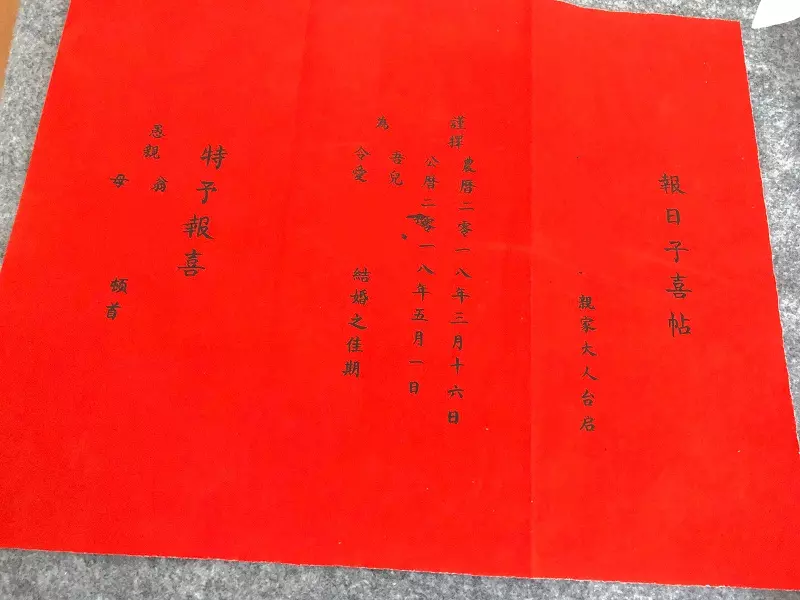 報日子喜帖
親家大人台启
謹擇
農曆二零一八年三月十六日
公曆二零一八年五月一日
為
吾兒
令愛
結婚之佳期
特予報喜
愚親
翁
母
頓首